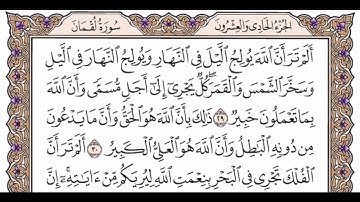 الجزء الحادي والعشرون
سورة لقمان
أَلَمْ تَرَ أَنَّ اللَّهَ يُولِجُ الَّيْلَ فِي النَّهَارِ وَيُولِجُ النَّهَارَ فِي الَّيْلِ
وَسَخَّرَ الشَّمْسَ وَالْقَمَرَ كُلٌّ يَجْرِي إِلَى أَجَلٍ مُّسَمًّى وَأَنَّ اللَّهَ
بِمَا تَعْمَلُونَ خَبِيرٌ ٢٩ ذَلِكَ بِأَنَّ اللَّهَ هُوَ الْحَقُّ وَأَنَّ مَا يَدْعُونَ
مِن دُونِهِ الْبَطِلُ وَأَنَّ اللَّهَ هُوَ الْعَلِيُّ الْكَبِيرُ ٣٠ أَلَمْ تَرَ أَنَّ
الْفُلْكَ تَجْرِي فِي الْبَحْرِ بِنِعْمَتِ اللَّهِ لِيُرِيَكُم مِّنْ ءَايَتِهِ إِنَّ